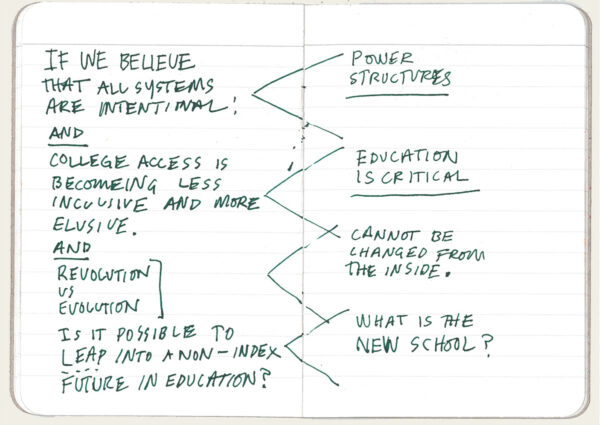 IF WE BELIEVE
THAT ALL SYSTEMS
ARE INTENTIONAL!
AND
COLLEGE ACCESS IS
BECOMEING LESS
INCLUSIVE AND MORE
ELUSIVE.
AND
REVOLUTION
VS
EVOLUTION
IS IT POSSIBLE TO
LEAP INTO A NON-INDEX
FUTURE IN EDUCATION?
POWER
STRUCTURES
EDUCATION
IS CRITICAL
CANNOT BE
CHANGED FROM
THE INSIDE.
WHAT IS THE
NEW SCHOOL?